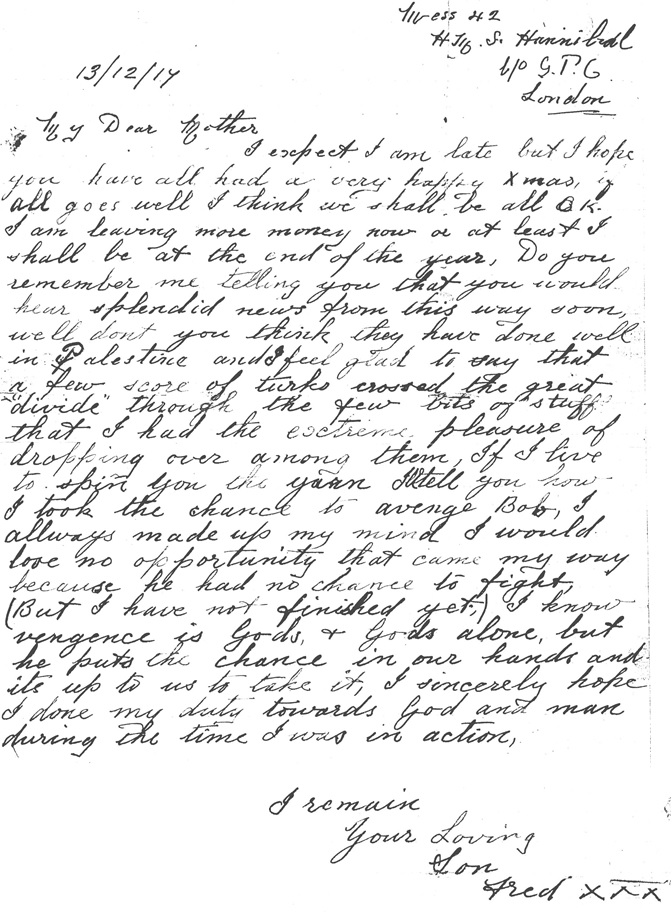 Mess 42
H.M.S. Hannibal
c/o G.P.O
London
13/12/17
My Dear Mother
I expect I am late but I hope
you have all had a very happy Xmas, if
all goes well I think we shall be all O.K.
I am leaving more money now or at least I
shall be at the end of the year, Do you
remember me telling you that you would
hear splendid news from this way soon,
well dont you think they have done well
in Palestine and I feel glad to say that
a few score of turks crossed the great
"divide" through the few bits of "stuff"
that I had the extreme pleasure of
dropping over among them, If I live
to spin you the yarn I'll tell you how
I took the chance to avenge Bob, I
allways made up my mind I would
lose no opportunity that came my way
because he had no chance to fight,
(But I have not finished yet,) I know
vengence is Gods, & Gods alone, but
he puts the chance in our hands and
its up to us to take it, I sincerely hope
I done my duty towards God and man
during the time I was in action,
I remain
Your Loving
Son
Fred xxx